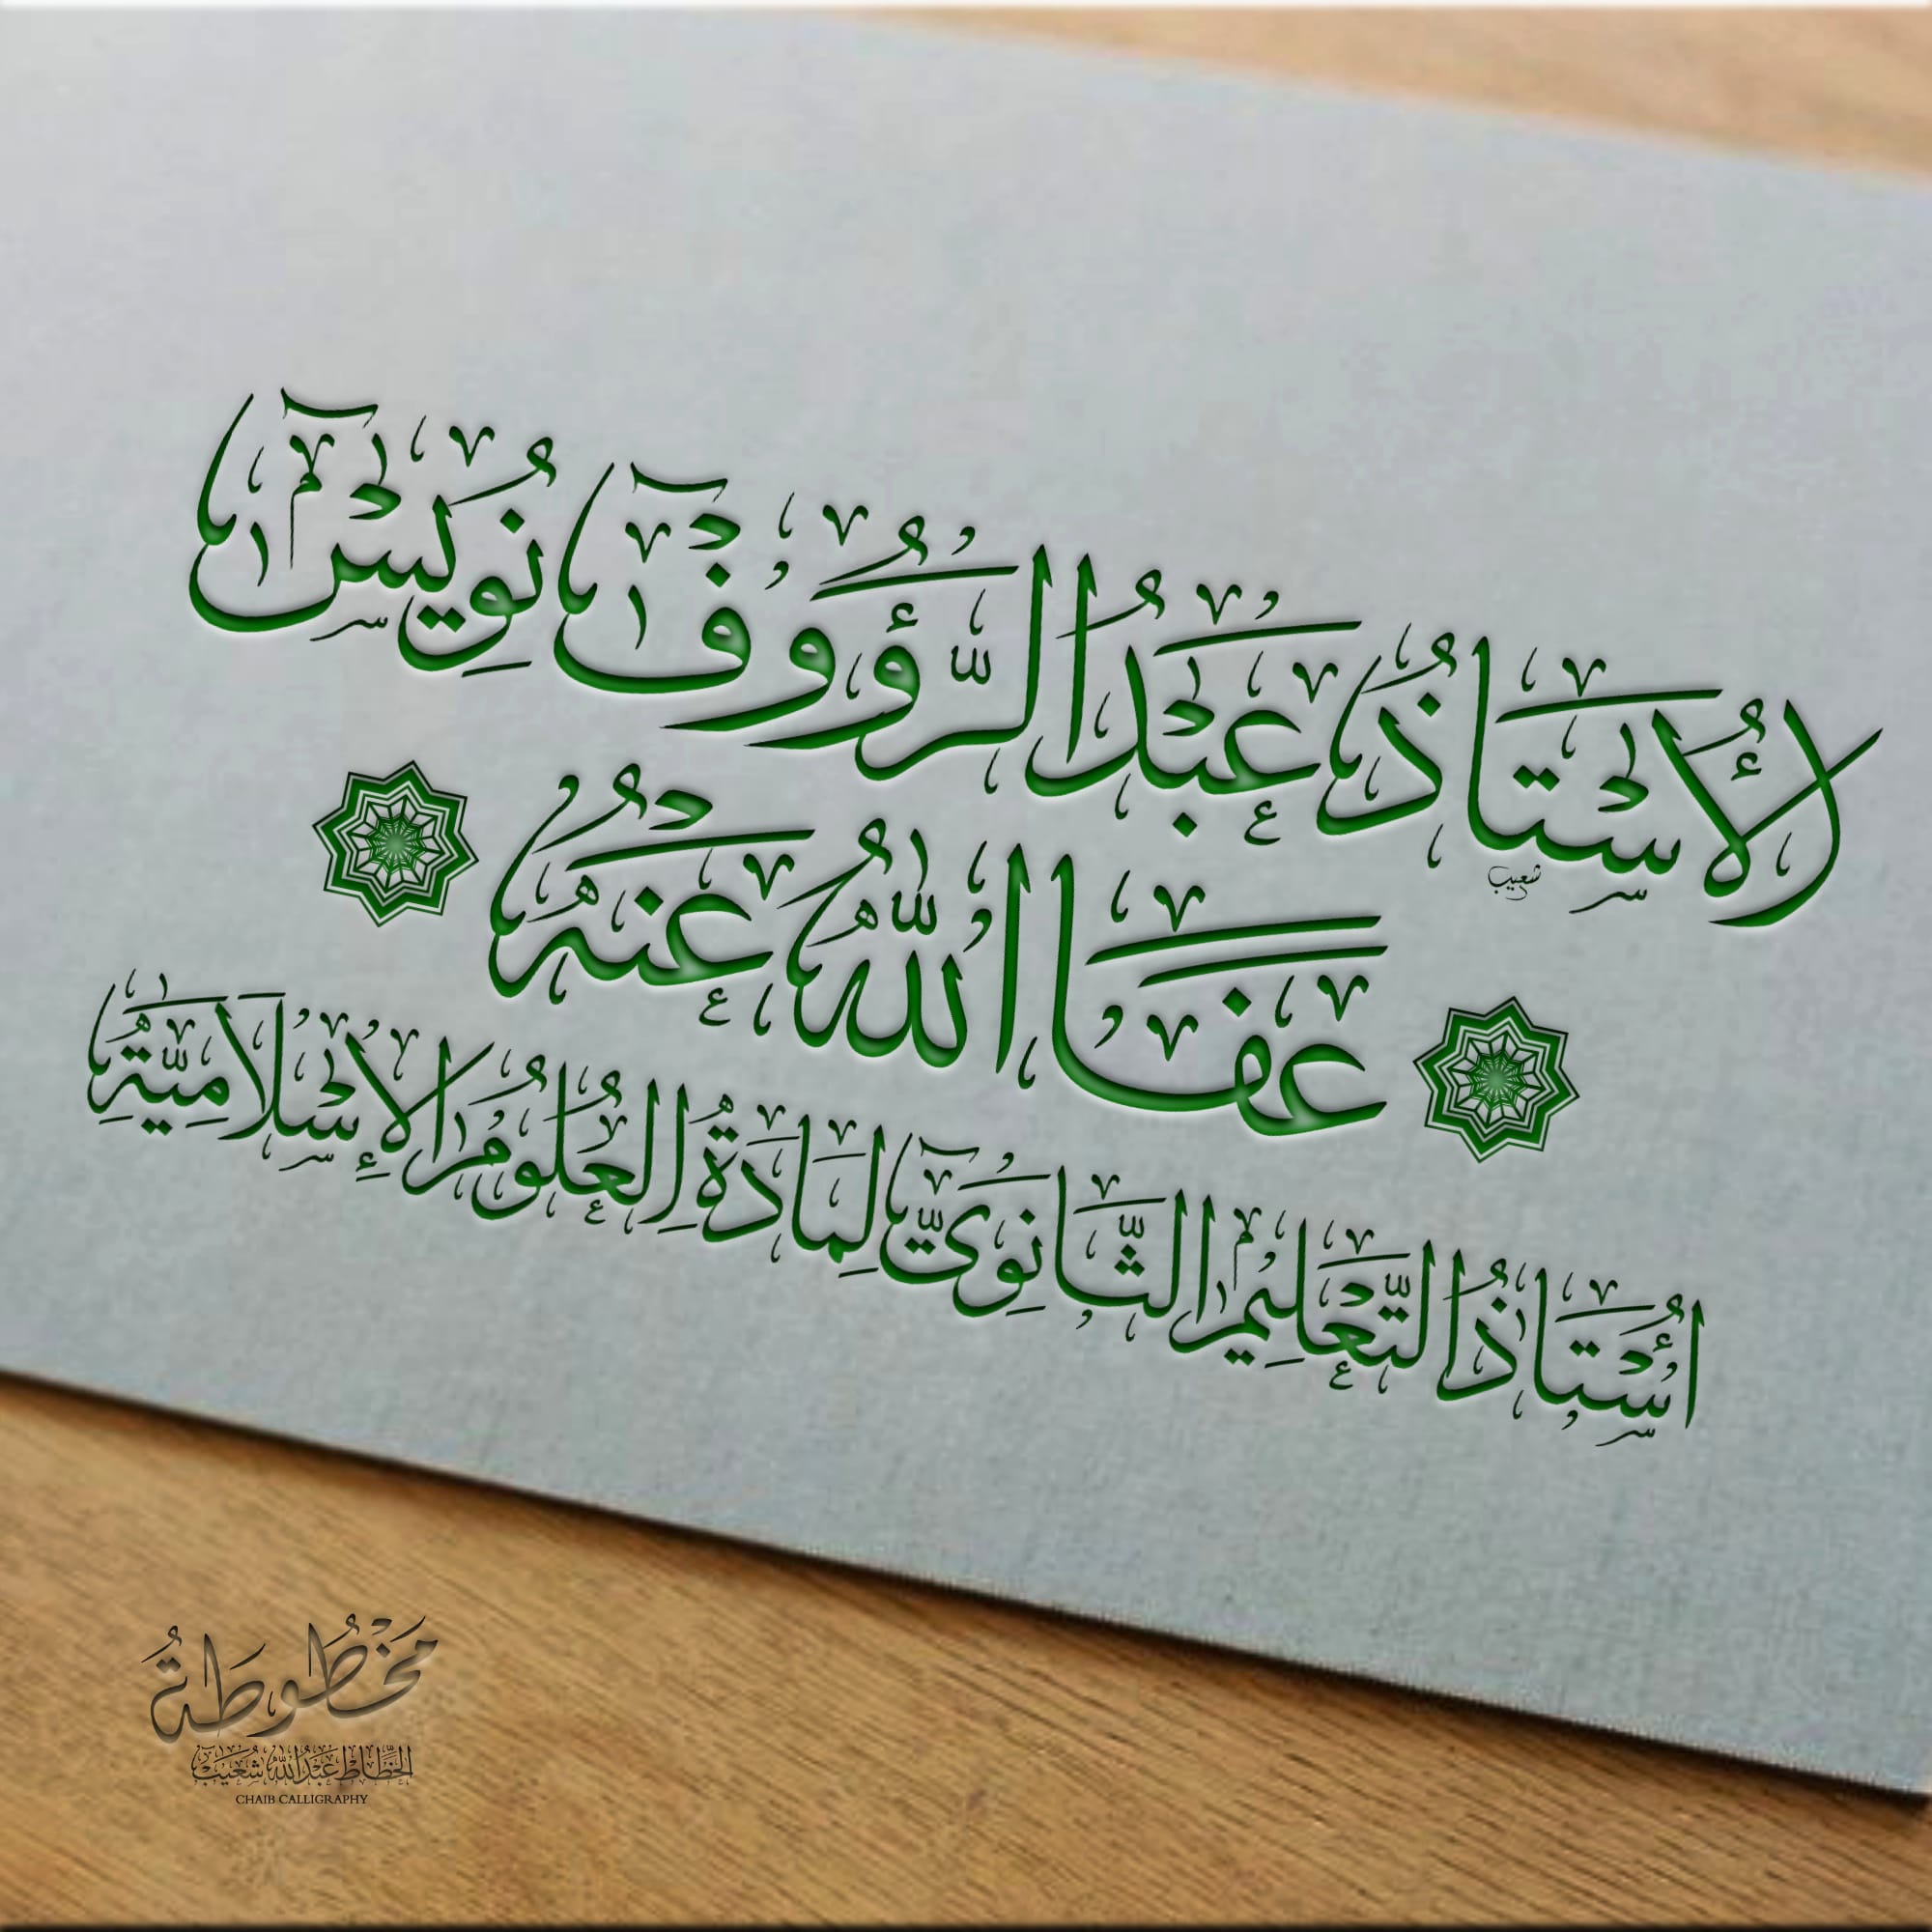 الأُسْتَاذُ عَبْدُ الرَّؤُوفْ نُوَيِسْ
شعيب
عَفَا اللّٰهُ عَنْهُ
أُسْتَاذُ التَّعْلِيمِ الثَّانَوِيِّ لِمَادَّةِ العُلُومِ الإِسْلَامِيَّةِ
مَخْطُوطَةُ
الخَطَّاطِ عَبْدُ اللّٰهِ شُعَيْبْ
CHAIB CALLIGRAPHY